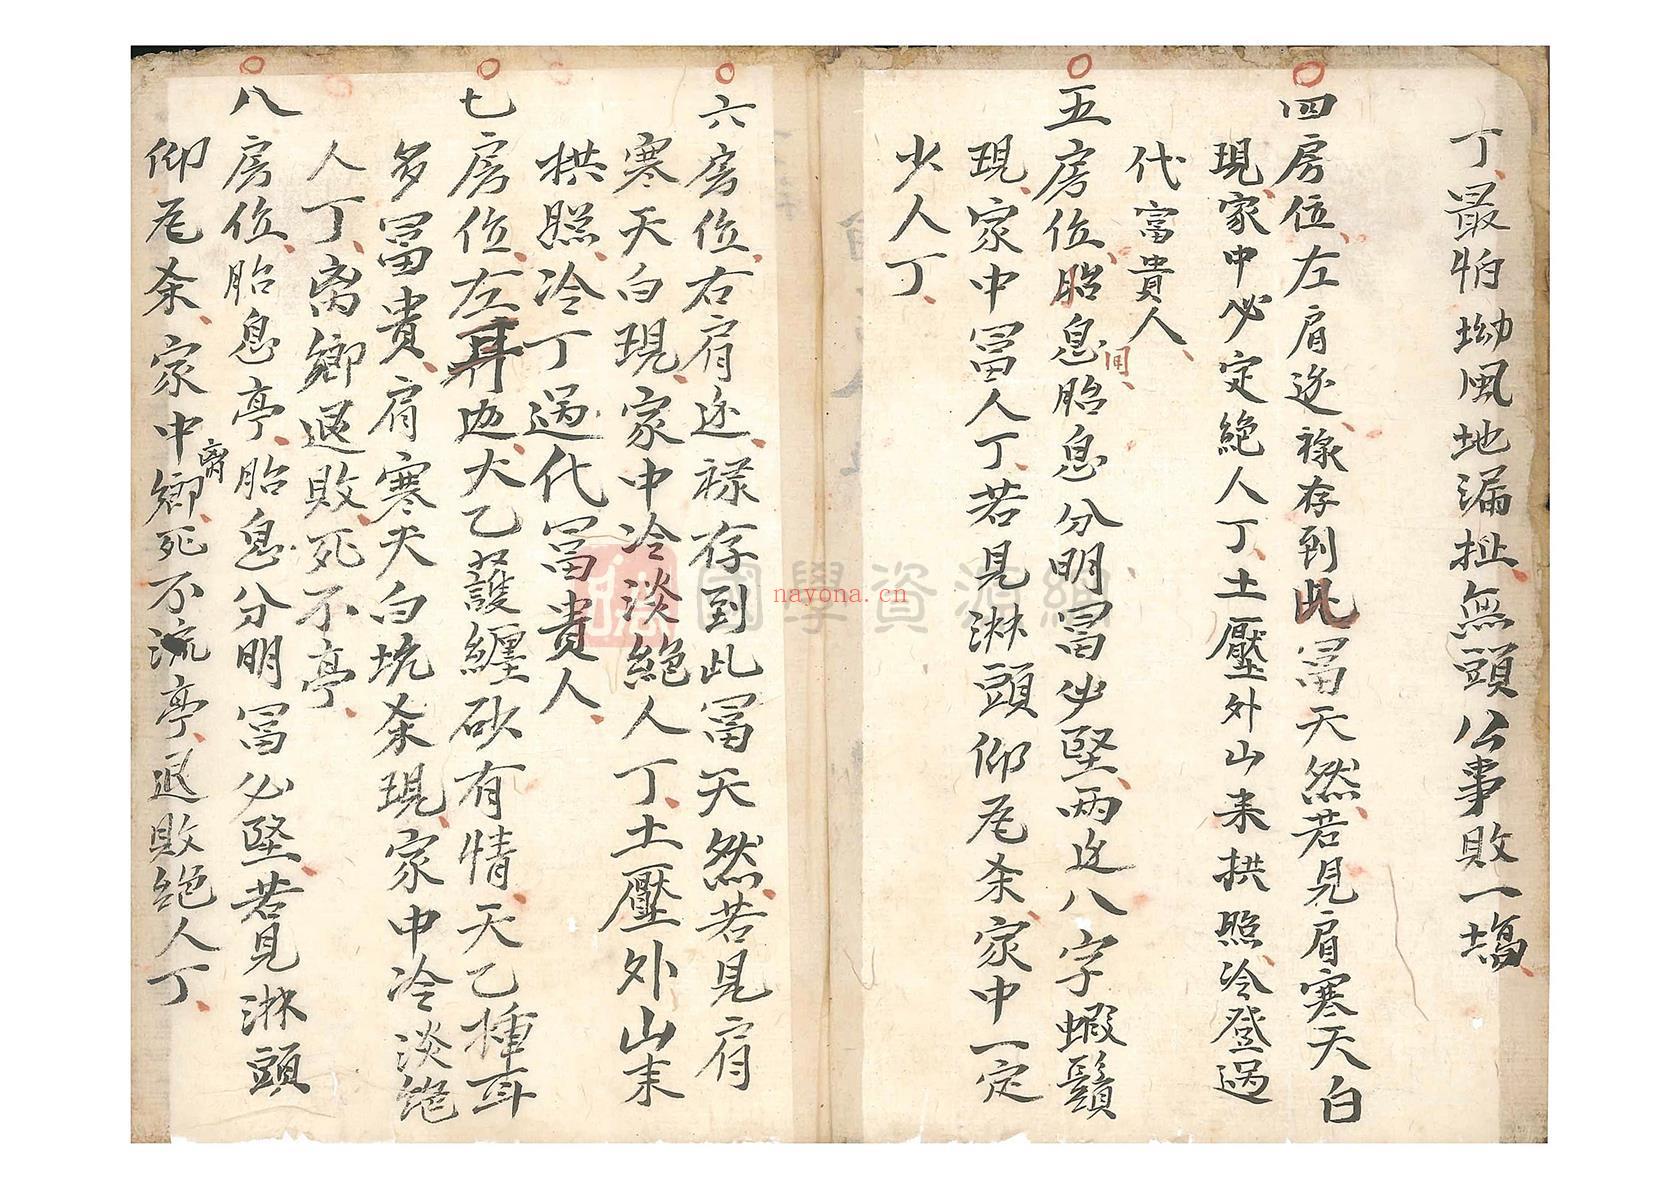 丁、最怕坳風地漏扯、無頭公事敗一塲、
四房位、左肩迯、祿存到此冨天然、若見肩寒天白
現、家中必定絕人丁、土壓外山来拱照、冷登過
代富貴人、
五房位、胎息胎息分明冨必堅、兩边八字蝦鬚
間、
現、家中冨人丁、若見淋頭仰尾杀、家中一定
少人丁、
六房位、右肩迯、祿存到此冨天然、若見肩
寒天白現、家中冷淡絕人丁、土壓外山来
拱照、冷丁過代冨貴人、
七房位、左耳边、大乙護纏砂有情、天乙種耳
多冨貴、肩寒天白坑杀現、家中冷淡絕
人丁、离鄉退敗、死不亭、
八房位、胎息亭、胎息分明冨必堅、若見淋頭
仰尾杀、家中離鄉、死不流亭、退敗絕人丁、
國學資源網
nayona.cn